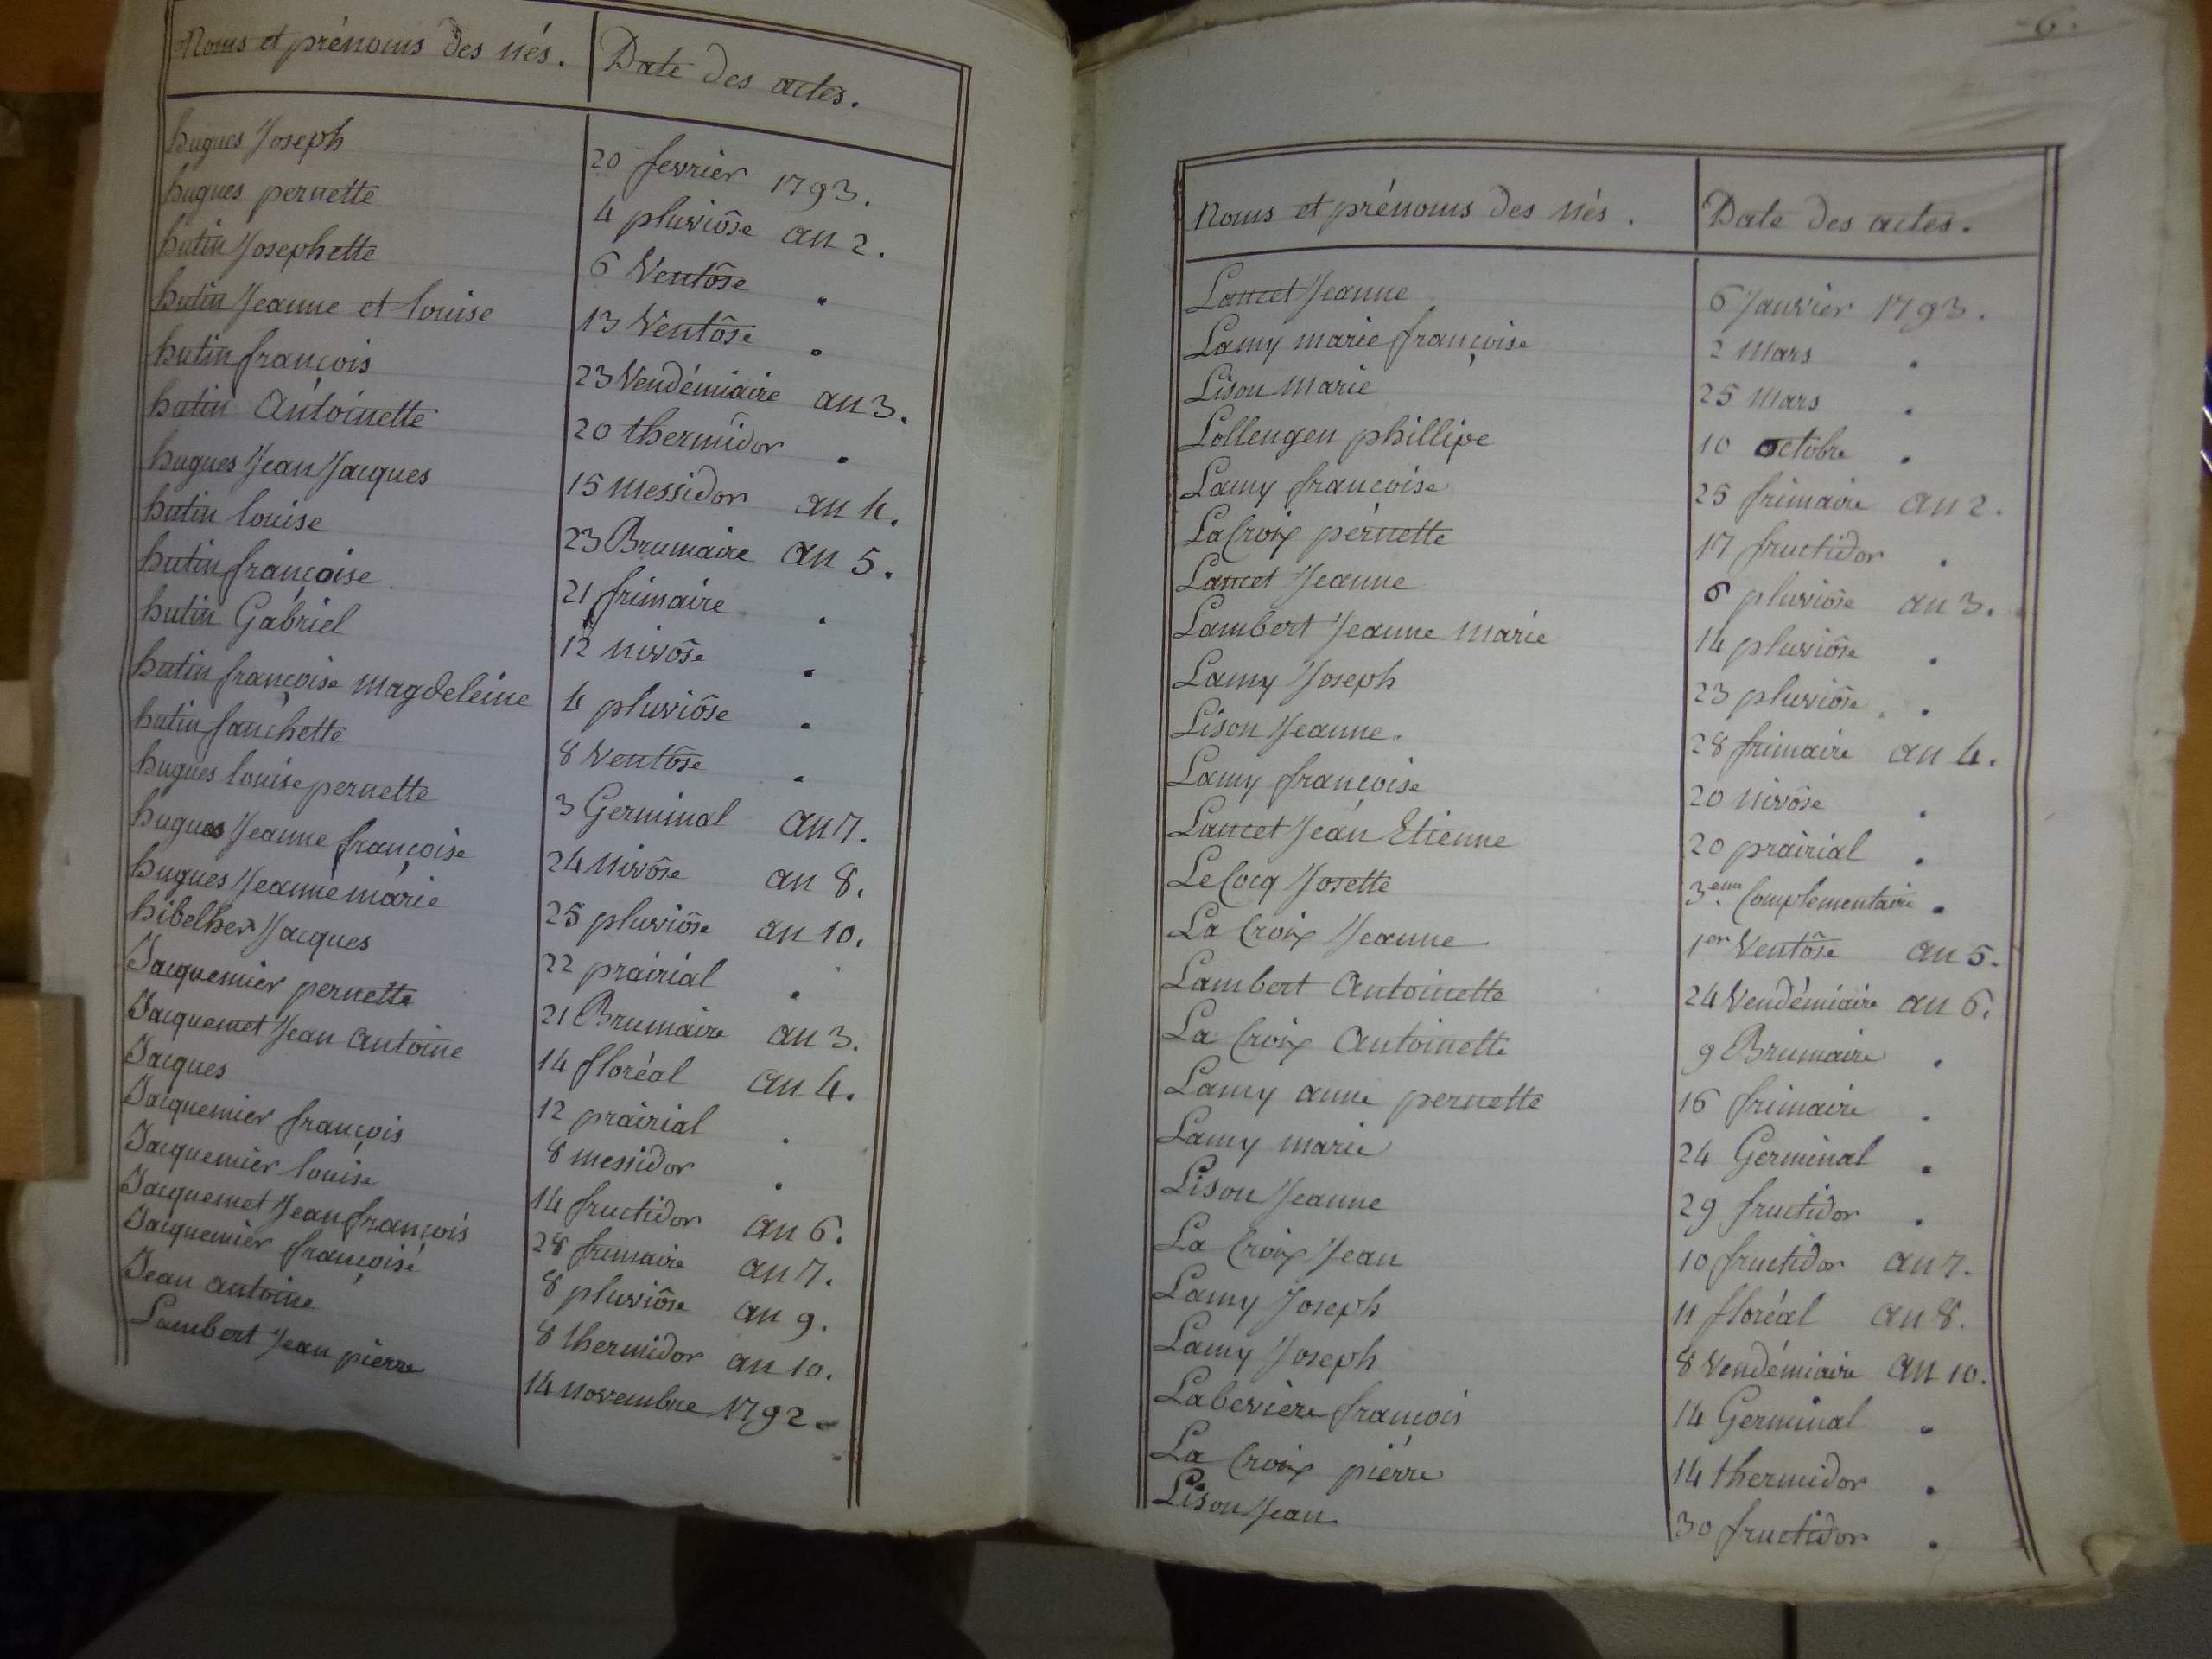 Noms et prénoms des nés. Date des actes.
hugues Joseph 20 fevrier 1793.
hugues pernette 4 pluviôse an 2.
hutin Josephette 6 Ventôse "
hutin Jeanne et louise 13 Ventôse "
hutin françois 23 Vendémiaire an 3.
hutin Antoinette 20 thermidor "
hugues Jean Jacques 15 messidor an 4.
hutin louise 23 Brumaire an 5.
hutin françoise 21 frimaire "
hutin Gabriel 12 nivôse "
hutin françoise magdeleine 4 pluviôse "
hutin fanchette 8 Ventôse "
hugues louise pernette 3 Germinal an 7.
hugues Jeanne françoise 24 Nivôse an 8.
hugues Jeanne marie 25 pluviôse an 10.
hibelher Jacques 22 prairial "
Jacquemier pernette 21 Brumaire an 3.
Jacquemet Jean antoine 14 floréal an 4.
Jacques 12 prairial "
Jacquemier françois 8 messidor "
Jacquemier louise 14 fructidor an 6.
Jacquemet Jean françois 28 frimaire an 7.
Jacquemier françoise 8 pluviôse an 9.
Jean antoine 8 thermidor an 10.
Lambert Jean pierre 14 novembre 1792.
6.
Noms et prénoms des nés. Date des actes.
Lancet Jeanne 6 Janvier 1793.
Lamy marie françoise 2 mars "
Lison marie 25 mars "
Lollengen phillipe 10 octobre "
Lamy francoise 25 frimaire an 2.
LaCroix pernette 17 fructidor "
Lancet Jeanne 6 pluviôse an 3.
Lambert Jeanne marie 14 pluviôse "
Lamy Joseph 23 pluviôse "
Lison Jeanne. 28 frimaire an 4.
Lamy françoise 20 nivôse "
Lancet Jean Etienne 20 prairial "
LeCocq Josette 3.eme Complementaire "
La Croix Jeanne 1er Ventôse an 5.
Lambert Antoinette 24 Vendémiaire an 6.
La Croix Antoinette 9 Brumaire "
Lamy anne pernette 16 frimaire "
Lamy marie 24 Germinal "
Lison Jeanne 29 fructidor "
La Croix Jean 10 fructidor an 7.
Lamy Joseph 11 floréal an 8.
Lamy Joseph 8 Vendémiaire an 10.
Labeviere françois 14 Germinal "
La Croix pierre 14 thermidor "
Lison Jean 30 fructidor "